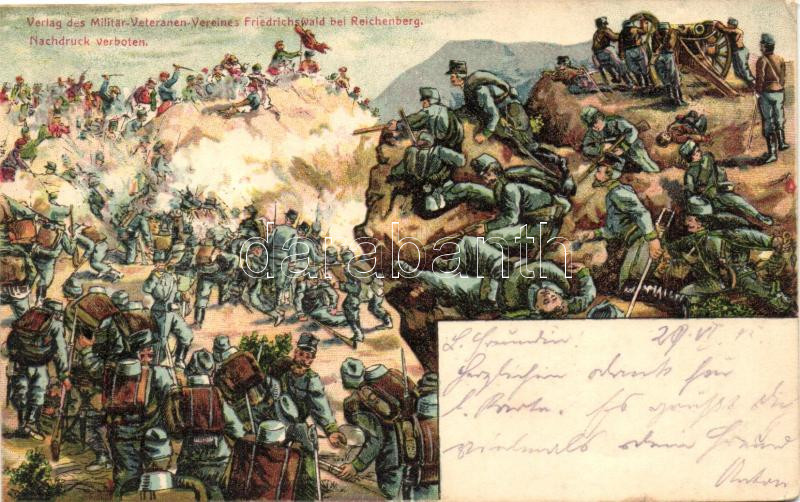 Verlag des Militär-Veteranen-Vereines Friedrichswald bei Reichenberg.
Nachdruck verboten.
darabanth
L. Freundin!
Herzlichen Dank für
l. Karte. Es grüßt die
vielmals dein Freund
Anton